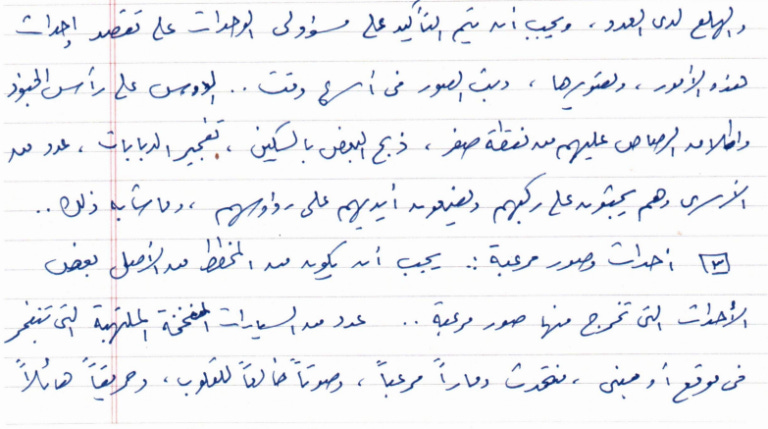 والهلع لدى العدو، ويجب أن يتم التأكيد على مسؤولي الوحدات على تقصد إحداث
هذه الأمور، وتصويرها، وبث الصور في أسرع وقت.. الدوس على رأس الجنود
وإطلاق الرصاص عليهم من نقطة صفر، ذبح البعض بالسكين، تفجير الدبابات، عدد من
الأسرى وهم يجثون على ركبهم ويضعون أيديهم على رؤوسهم، وما شابه ذلك..
[٣] أحداث وصور مرعبة: يجب أن يكون من المخطط من الأصل بعض
الأحداث التي تخرج منها صور مرعبة.. عدد من السيارات المفخخة الملتهبة التي تنفجر
في موقع أو مبنى، فتحدث دماراً مرعباً، وصوتاً خالعاً للقلوب، وحريقاً هائلاً